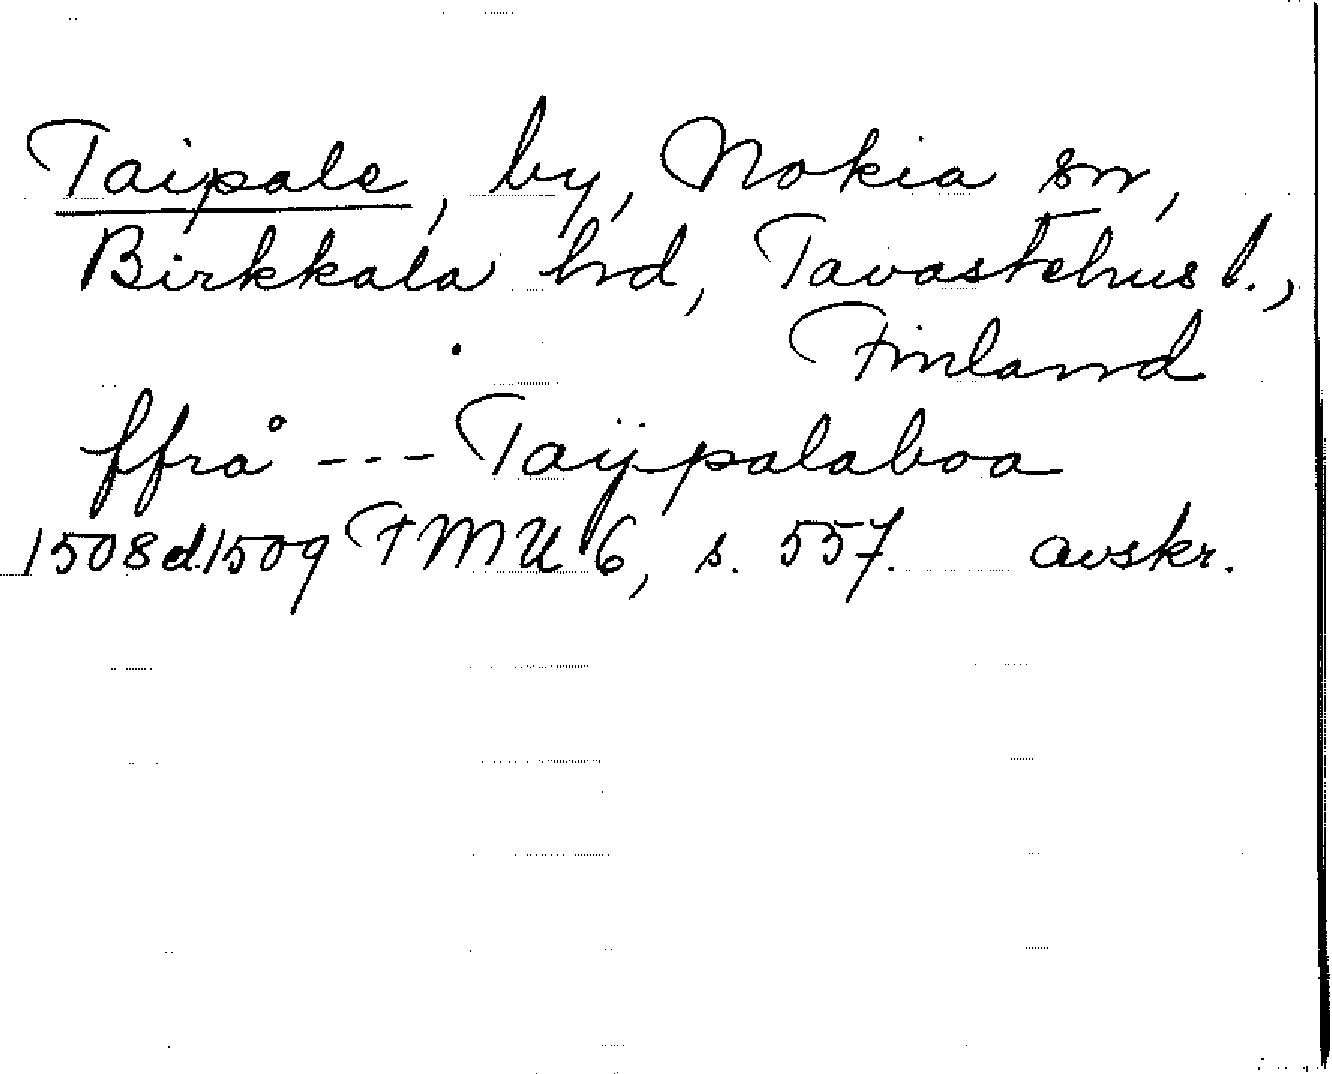 Taipale, by, Nokia sn,
Birkkala hrd, Tavastehus l.,
Finland
ffrå --- Taijpalaboa
1508 el. 1509 FMU 6, s. 557. avskr.